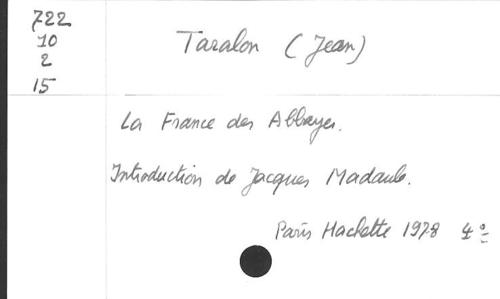 722
10
2
15
Taralon (Jean)
La France des Abbayes.
Introduction de Jacques Madaule.
Paris Hachette 1978 4°